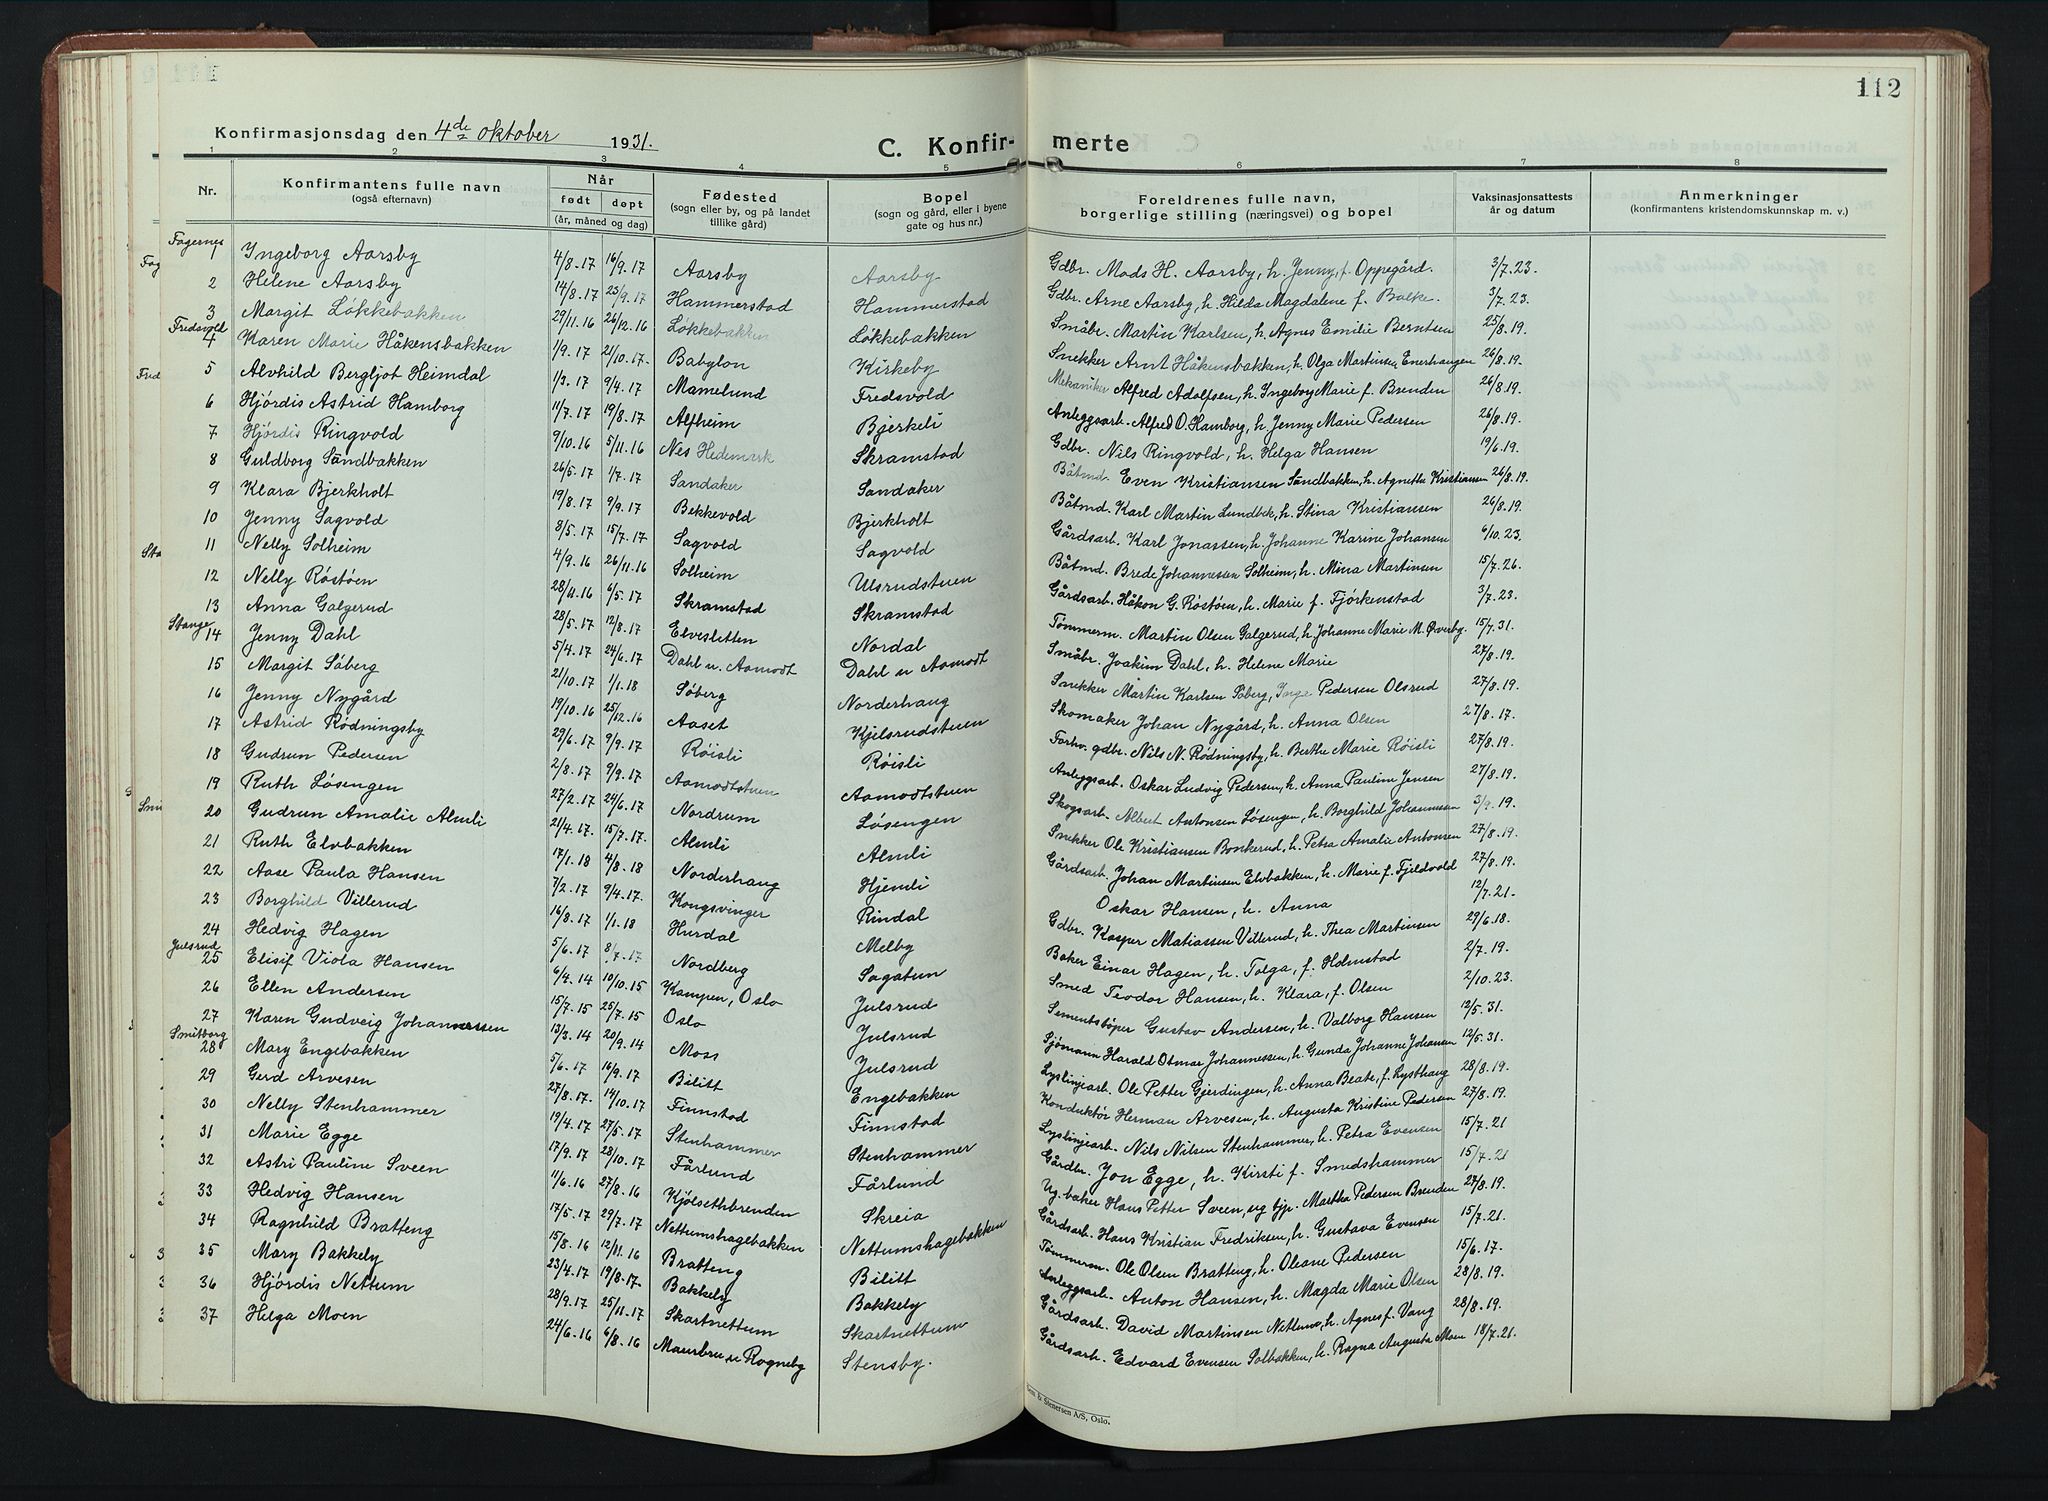 112
Konfirmasjonsdag den 4de oktober 1931.
C. Konfir- merte
1 2 3 4 5 6 7 8
Nr. Konfirmantens fulle navn (også efternavn) Når født døpt (år, måned og dag) Fødested (sogn eller by, og på landet tillike gård) Bopel (sogn og gård, eller i byene gate og hus nr.) Foreldrenes fulle navn, borgerlige stilling (næringsvei) og bopel Vaksinasjonsattests år og datum Anmerkninger (konfirmantens kristendomskunnskap m. v.)
Fagernes
1 Ingeborg Aarsby 4/8.17 16/9.17 Aarsby Aarsby Gdbr. Mads H. Aarsby, h. Jenny, f. Oppegård. 3/7.23.
2 Helene Aarsby 14/8.17 25/9.17 Hammerstad Hammerstad Gdbr. Arne Aarsby, h. Hilda Magdalene f. Balke. 3/7.23.
3 Margit Løkkebakken 29/11.16 26/12.16 Løkkebakken Løkkebakken Småbr. Martin Karlsen, h. Agnes Emilie Berntsen 25/8.19.
Fredsvold
4 Karen Marie Håkensbakken 1/9.17 21/10.17. Babylon Kirkeby Snekker Arnt Håkensbakken, h. Olga Martinsen Enerhaugen 26/8.19.
5 Alvhild Bergljot Heimdal 1/3.17 9/4.17 Mamelund Fredsvold Mekaniker Alfred Adolfsen, h. Ingeborg Marie f. Brenden 26/8.19.
6 Hjördis Astrid Hamborg 11/7.17 19/8.17 Alfheim Bjerkeli Anleggsarb. Alfred O. Hamborg, h. Jenny Marie Pedersen 26/8.19.
7 Hjördis Ringvold 9/10.16 5/11.16 Nes Hedemark Skramstad Gdbr. Nils Ringvold, h. Helga Hansen 19/6.19.
8 Guldborg Sandbakken 26/5.17 1/7.17 Sandaker Sandaker Båtmd. Even Kristiansen Sandbakken, h. Agnethe Kristiansen 26/8.19.
9 Klara Bjerkholt 19/8.17 9/9.17 Bekkevold Bjerkholt Båtmd. Karl Martin Lundbek, h. Stina Kristiansen 26/8.19.
10 Jenny Sagvold 8/5.17 15/7.17 Sagvold Sagvold Gårdsarb. Karl Jonassen, h. Johanne Karine Johansen 6/10.23.
11 Nelly Solheim 4/9.16 26/11.16 Solheim Ulsrudstuen Båtmd. Brede Johannessen Solheim, h. Mina Martinsen 15/7.26.
12 Nelly Röstöen 28/4.16 6/5.17 Skramstad Skramstad Gårdsarb. Håkon G. Röstöen, h. Marie f. Fjörkenstad 3/7.23.
13 Anna Galgerud 28/5.17 12/8.17 Elvesletten Nordal Tömmerm. Martin Olsen Galgerud, h. Johanne Marie M. Øverby. 15/7.31.
Stange
14 Jenny Dahl 5/4.17 24/6.17 Dahl u. Aamodt Dahl u Aamodt Småbr. Joakim Dahl, h. Helene Marie 27/8.19.
15 Margit Söberg 21/10.17 1/1.18 Söberg Norderhaug Snekker Martin Karlsen Söberg, Inge Pedersen Olsrud 27/8.19.
16 Jenny Nygård 19/10.16 25/12.16 Aaset Kjelsrudstuen Skomaker Johan Nygård, h. Anna Olsen 27/8.17.
17 Astrid Rödningsby 29/6.17 9/9.17 Röisli Röisli Forhv. gdbr. Nils N. Rödningsby, h. Berthe Marie Röisli 27/8.19.
18 Gudrun Pedersen 2/8.17 9/9.17 Aamodtstuen Aamodtstuen Anleggsarb. Oskar Ludvig Pedersen, h. Anna Pauline Jensen 27/8.19.
19 Ruth Lösengen 27/2.17 24/6.17 Nordrum Lösengen Skogsarb. Albert Antonsen Lösengen, h. Borghild Johannessen 3/9.19.
20 Gudrun Amalie Almli 21/4.17 15/7.17. Almli Almli Snekker Ole Kristiansen Bonkerud, h. Petra Amalie Antonsen 27/8.19.
21 Ruth Elvbakken 17/1.18 4/8.18 Norderhaug Hjemli Gårdsarb. Johan Martinsen Elvbakken, h. Marie f. Fjeldvold 27/8.19.
22 Aase Paula Hansen 7/2.17 9/4.17. Kongsvinger Rindal Oskar Hansen, h. Anna 12/7.21.
23 Borghild Villerud 16/8.17 1/1.18 Hurdal Melby Gdbr. Kasper Matiassen Villerud, h. Thea Martinsen 29/6.18.
24 Hedvig Hagen 5/6.17 8/7.17 Nordberg Sagatun Baker Einar Hagen, h. Tolga, f. Holmstad 2/7.19.
Julsrud
25 Elisif Viola Hansen 6/4.14 10/10.15 Kampen, Oslo Julsrud Smed Teodor Hansen, h. Klara, f. Olsen 2/10.23.
26 Ellen Andersen 15/7.15 25/7.15 Oslo Julsrud Sementstöper Gustav Andersen, h. Valborg Hansen 12/5.31.
27 Karen Gudveig Johannessen 13/3.14 20/9.14 Moss Julsrud Sjömann Harald Otmar Johannessen, h. Gunda Johanne Johansen 12/5.31.
Smitborg
28 Mary Engebakken 5/6.17 16/9.17 Bilitt Engebakken Lyslinjearb. Ole Petter Gjerdingen, h. Anna Beate, f. Lysthaug 28/8.19.
29 Gerd Arvesen 27/8.17. 14/10.17 Finnstad Finnstad Konduktör Herman Arvesen, h. Augusta Kristine Pedersen 27/8.19.
30 Nelly Stenhammer 19/4.17 27/5.17 Stenhammer Stenhammer Lyslinjearb. Nils Nilsen Stenhammer, h. Petra Evensen 15/7.21
31 Marie Egge 17/9.17 28/10.17 Fårlund Fårlund Gårdbr. Jon Egge, h. Kirsti f. Smedshammer 15/7.21
32 Astri Pauline Sveen 11/6.16 27/8.16 Kjölsethbrenden Skreia Ug. baker Hans Petter Sveen, ug tjp. Martha Pedersen Brenden 27/8.19.
33 Hedvig Hansen 17/5.17 29/7.17 Nettumshagebakken Nettumshagebakken Gårdsarb. Hans Kristian Fredriksen, h. Gustava Evensen 15/7.21.
34 Ragnhild Bratteng 15/8.16 12/11.16 Bratteng Bilitt Tömmerm. Ole Olsen Bratteng, h. Oleane Pedersen 15/6.17.
35 Mary Bakkely 23/4.17 19/8.17. Bakkely Bakkely Anleggsarb. Anton Hansen, h. Magda Marie Olsen 28/8.19.
36 Hjördis Nettum 28/9.17 25/11.17 Skartnettum Skartnettum Gårdsarb. David Martinsen Nettum, h. Agnes f. Vang 28/8.19.
37 Helga Moen 24/6.16 6/8.16 Maurbru u Rogneby Stensby. Gårdsarb. Edvard Evensen Solbakken, h. Ragna Augusta Moen 18/7.21.
& Stenersen A/S, Oslo.